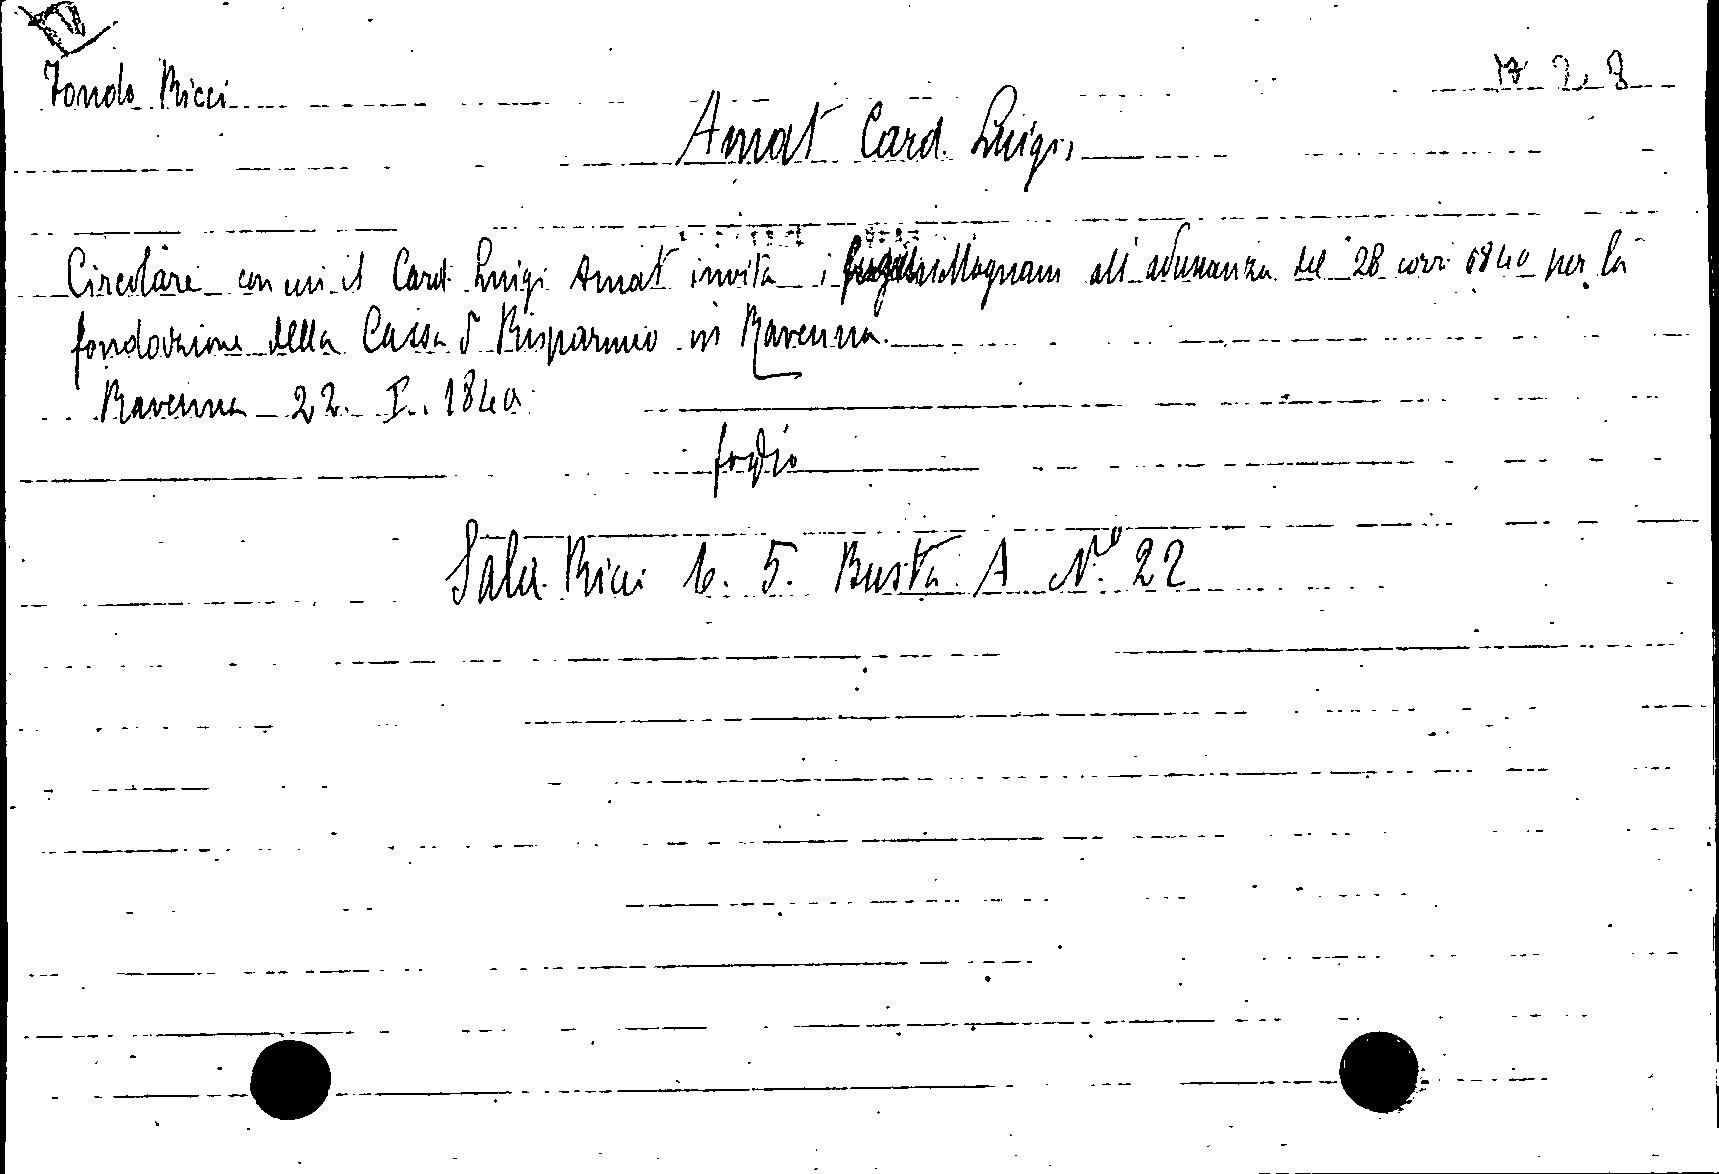 Fondo Ricci
Amat Card. Luigi
Circolare con cui il Card. Luigi Amat invita i Magnani all'adunanza del 28 corr. 1840 per la
fondazione della Cassa di Risparmio in Ravenna.
Ravenna 22. I. 1840
foglio
Sala Ricci 6. 5. Busta A N.º 22